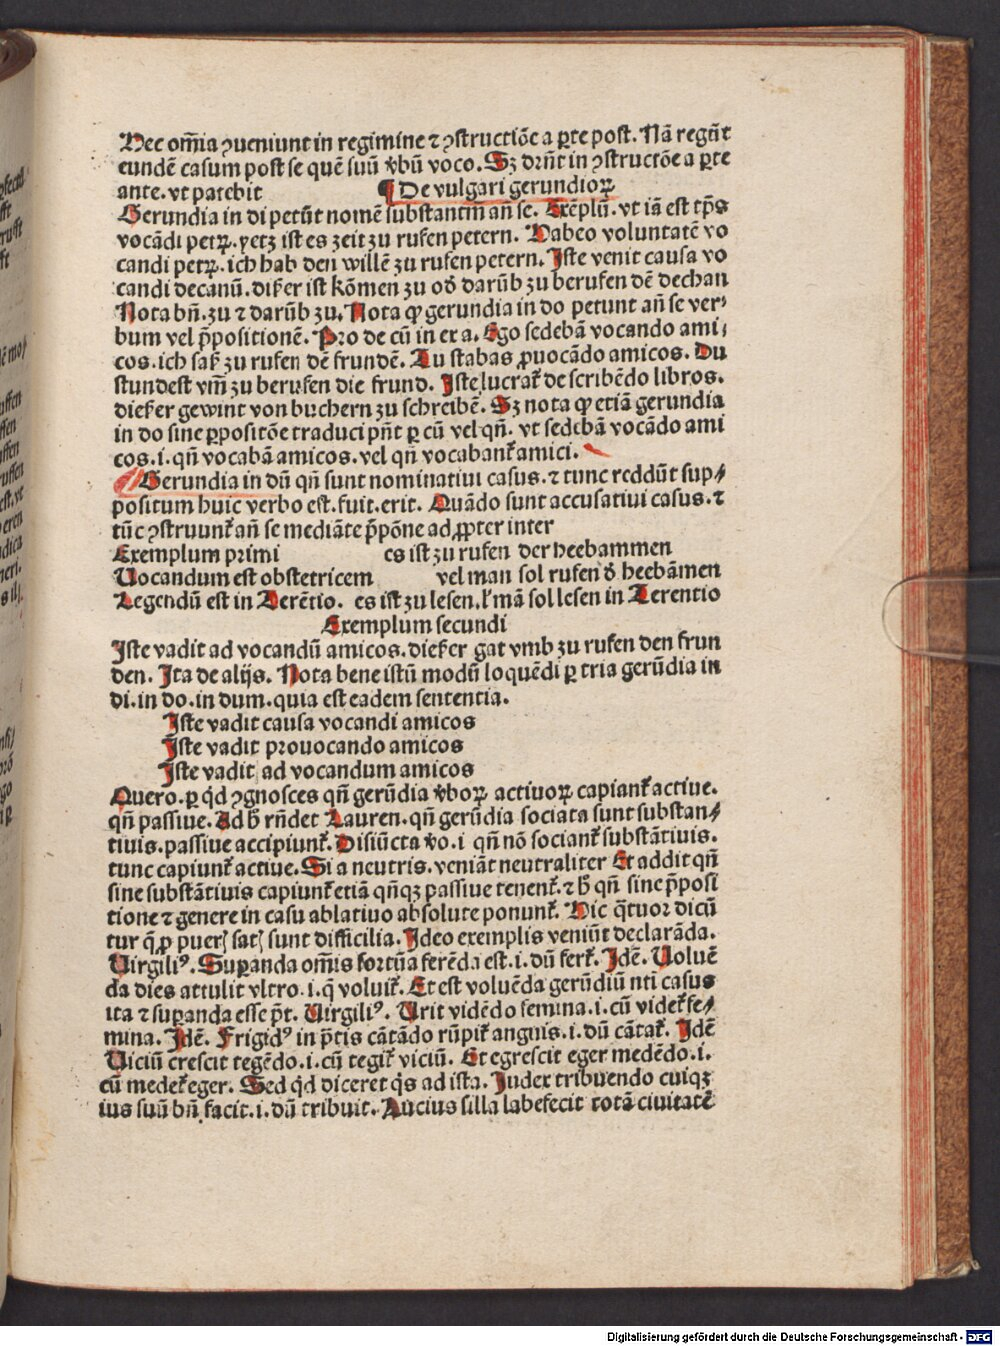 Hec om̄ia ꝯueniunt in regimine ⁊ ꝯstructiōe a ꝑte post. Nā regūt
eundē casum post se quē suū v̆bū voco. Sꝫ dr̄nt in ꝯstructōe a ꝑte
ante. vt patebit ¶ De vulgari gerundioꝝ
Gerundia in di petūt nomē substantiū an̄ se. Exēplū. vt iā est tp̄s
vocādi petꝝ. yetz ist es zeit zu rufen petern. Habeo voluntatē vo
candi petꝝ. ich hab den willē zu rufen petern. Iste venit causa vo
candi decanū. dißer ist kōmen zu od̆ darūb zu berufen dē dechan
Nota bn̄. zu ⁊ darūb zu. Nota ꝙ gerundia in do petunt an̄ se ver⸗
bum vel p̄positionē. Pro de cū in ex a. Ego sedebā vocando ami⸗
cos. ich saß zu rufen dē frundē. Tu stabas ꝓuocādo amicos. Du
stundest vm̄ zu berufen die frund. Iste lucrat᷑ de scribēdo libros.
dießer gewint von buchern zu schreibē. Sꝫ nota ꝙ etiā gerundia
in do sine ꝑpositōe traduci pn̄t ꝑ cū vel qn̄. vt sedebā vocādo ami
cos. i. qn̄ vocabā amicos. vel qn̄ vocabant᷑ amici.
Gerundia in dū qn̄ sunt nominatiui casus. ⁊ tunc reddūt sup⸗
positum huic verbo est. fuit. erit. Quādo sunt accusatiui casus. ⁊
tūc ꝯstruunt᷑ an̄ se mediāte p̄pōne ad ꝓpter inter
Exemplum primi es ist zu rufen der heebammen
Uocandum est obstetricem vel man sol rufen d̆ heebāmen
Legendū est in Terētio. es ist zu lesen. ł mā sol lesen in Terentio
Exemplum secundi
Iste vadit ad vocandū amicos. dießer gat vmb zu rufen den frun
den. Ita de alijs. Nota bene istū modū loquēdi ꝑ tria gerūdia in
di. in do. in dum. quia est eadem sententia.
Iste vadit causa vocandi amicos
Iste vadit prouocando amicos
Iste vadit ad vocandum amicos
Quero. ꝑ qd̄ ꝯgnosces qn̄ gerūdia v̆boꝝ actiuoꝝ capiant᷑ actiue.
qn̄ passiue. Ad h̄ rn̄det Lauren. qn̄ gerūdia sociata sunt substan⸗
tiuis. passiue accipiunt᷑. Disiūcta v̆o. i qn̄ nō sociant᷑ substātiuis.
tunc capiunt᷑ actiue. Si a neutris. veniāt neutraliter Et addit qn̄
sine substātiuis capiunt᷑ etiā qn̄qꝫ passiue tenent᷑. ⁊ h̄ qn̄ sine p̄posi
tione ⁊ genere in casu ablatiuo absolute ponunt᷑. Hic q̄tuor dicū
tur q̄ ꝓ pueris satis sunt difficilia. Ideo exemplis veniūt declarāda.
Uirgiliꝰ. Suꝑanda om̄is fortūa ferēda est. i. dū fert᷑. Idē. Uoluē
da dies attulit vltro. i. q̄ voluit᷑. Et est voluēda gerūdiū nti casus
ita ⁊ suꝑanda esse pt̄. Uirgiliꝰ. Urit vidēdo femina. i. cū videt᷑ fe⸗
mina. Idē. Frigidꝰ in p̄tis cātādo rūpit᷑ anguis. i. dū cātat᷑. Idē
Uiciū crescit tegēdo. i. cū tegit᷑ viciū. Et egrescit eger medēdo. i.
cū medet᷑ eger. Sed qd̄ diceret q̇s ad ista. Iudex tribuendo cuiqꝫ
ius suū bn̄ facit. i. dū tribuit. Lucius silla labefecit totā ciuitatē
Digitalisierung gefördert durch die Deutsche Forschungsgemeinschaft - DFG